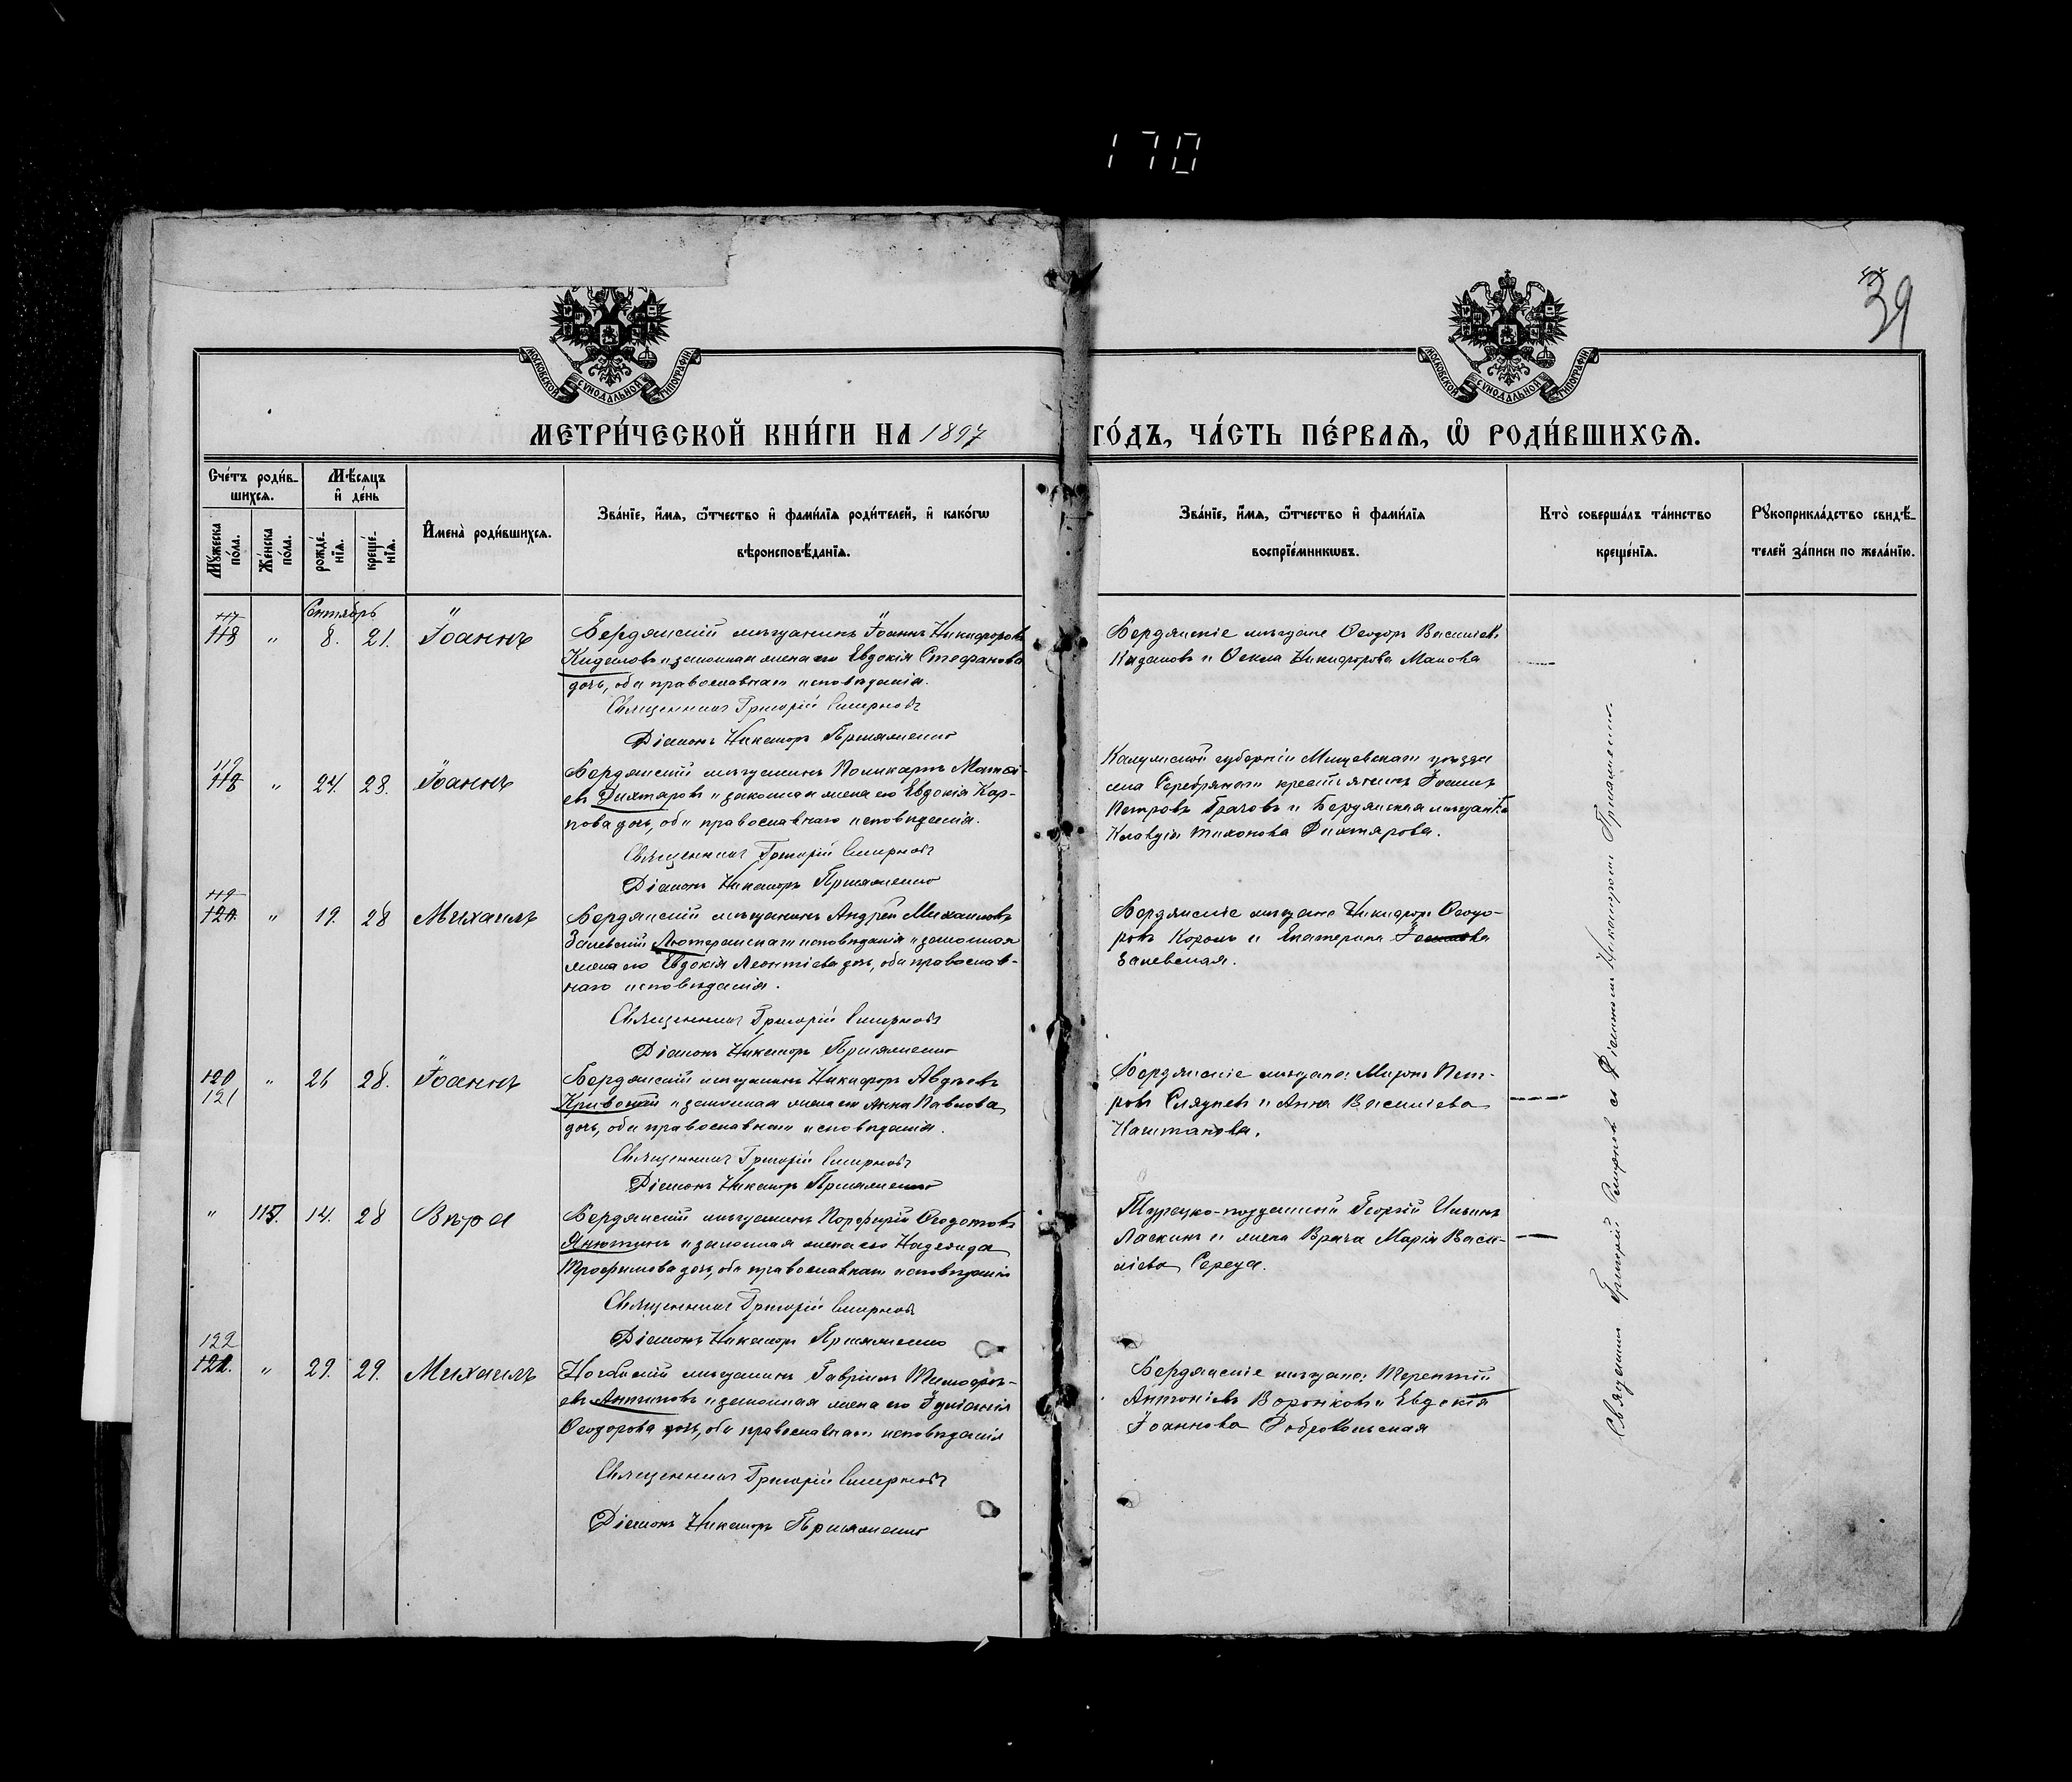 170
39
МОСКОВСКОЙ СѴНОДАЛЬНОЙ ТИПОГРАФІИ
МОСКОВСКОЙ СѴНОДАЛЬНОЙ ТИПОГРАФІИ
МЕТРИ́ЧЕСКОЙ КНИ́ГИ НА 1897 ГО́ДЪ, ЧА́СТЬ ПЕ́РВАѦ, Ѽ РОДИ́ВШИХСѦ.
Сче́тъ роди́в-
шихсѧ.
Мѣ́сѧцъ
и҆ де́нь
Мꙋ́жеска по́ла.
Же́нска по́ла.
рожде́-
нїѧ.
креще́-
нїѧ.
И҆мена̀ роди́вшихсѧ.
Зва́нїе, и҆́мѧ, ѻ҆́тчество и҆ фами́лїѧ роди́телей, и҆ како́гѡ
вѣроисповѣ́данїѧ.
Зва́нїе, и҆́мѧ, ѻ҆́тчество и҆ фами́лїѧ
воспрїе́мникѡвъ.
Кто̀ соверша́лъ та́инство
креще́нїѧ.
Рꙋкоприкла́дство свидѣ́-
телей за́писи по жела́нїю.
Сентябрь
117
118 " 8. 21. Іоаннъ
Бердянскій мѣщанинъ Іоаннъ Никифоровъ
и законная жена его Евдокія Стефанова
дочь, оба православнаго исповѣданія.
Священникъ Григорій Смирновъ
Діаконъ Никаноръ
Бердянскіе мѣщане Ѳеодоръ Васильевъ
и Ѳекла Никифорова
119 " 24. 28. Іоаннъ
Бердянскій мѣщанинъ Поликарпъ Матѳі-
евъ Дихтяровъ и законная жена его Евдокія Кар-
пова дочь, оба православнаго исповѣданія.
Священникъ Григорій Смирновъ
Діаконъ Никаноръ
Калужской губерніи Мещовскаго уѣзда
села Серебрянаго крестьянинъ
Петровъ Грачовъ и Бердянская мѣщанка
Клавдія Тихонова Дихтярова.
119
120 " 19. 28 Михаилъ
Бердянскій мѣщанинъ Андрей Михаиловъ
Залевскій Лютеранскаго исповѣданія и законная
жена его Евдокія Леонтіева дочь, оба православ-
наго исповѣданія.
Священникъ Григорій Смирновъ
Діаконъ Никаноръ
Бердянскіе мѣщане Никифоръ Ѳеодо-
ровъ Король и Екатерина
Залевская.
120
121 " 26 28. Іоаннъ
Бердянскій мѣщанинъ Никифоръ Авдѣевъ
и законная жена его Анна Павлова
дочь, оба православнаго исповѣданія.
Священникъ Григорій Смирновъ
Діаконъ Никаноръ
Бердянскіе мѣщане: Миронъ Пет-
ровъ и Анна Васильева
Каштанова.
" 115. 14. 28 Вѣра
Бердянскій мѣщанинъ Порфирій Ѳеодотовъ
Янютинъ и законная жена его Надежда
Трофимова дочь, оба православнаго исповѣданія
Священникъ Григорій Смирновъ
Діаконъ Никаноръ
Турецко-подданный Георгій Ильинъ
Ласкинъ и жена Врача Марія Васи-
ліева Середа.
122
" 29. 29. Михаилъ
Ногайскій мѣщанинъ Гавріилъ Тимофѣ-
евъ Антиповъ и законная жена его Іуліанія
Ѳеодорова дочь, оба православнаго исповѣданія
Священникъ Григорій Смирновъ
Діаконъ Никаноръ
Бердянскіе мѣщане: Терентій
Антоніевъ Воронковъ и Евдокія
Іоаннова Добровольская
Священникъ Григорій Смирновъ съ Діакономъ Никаноромъ